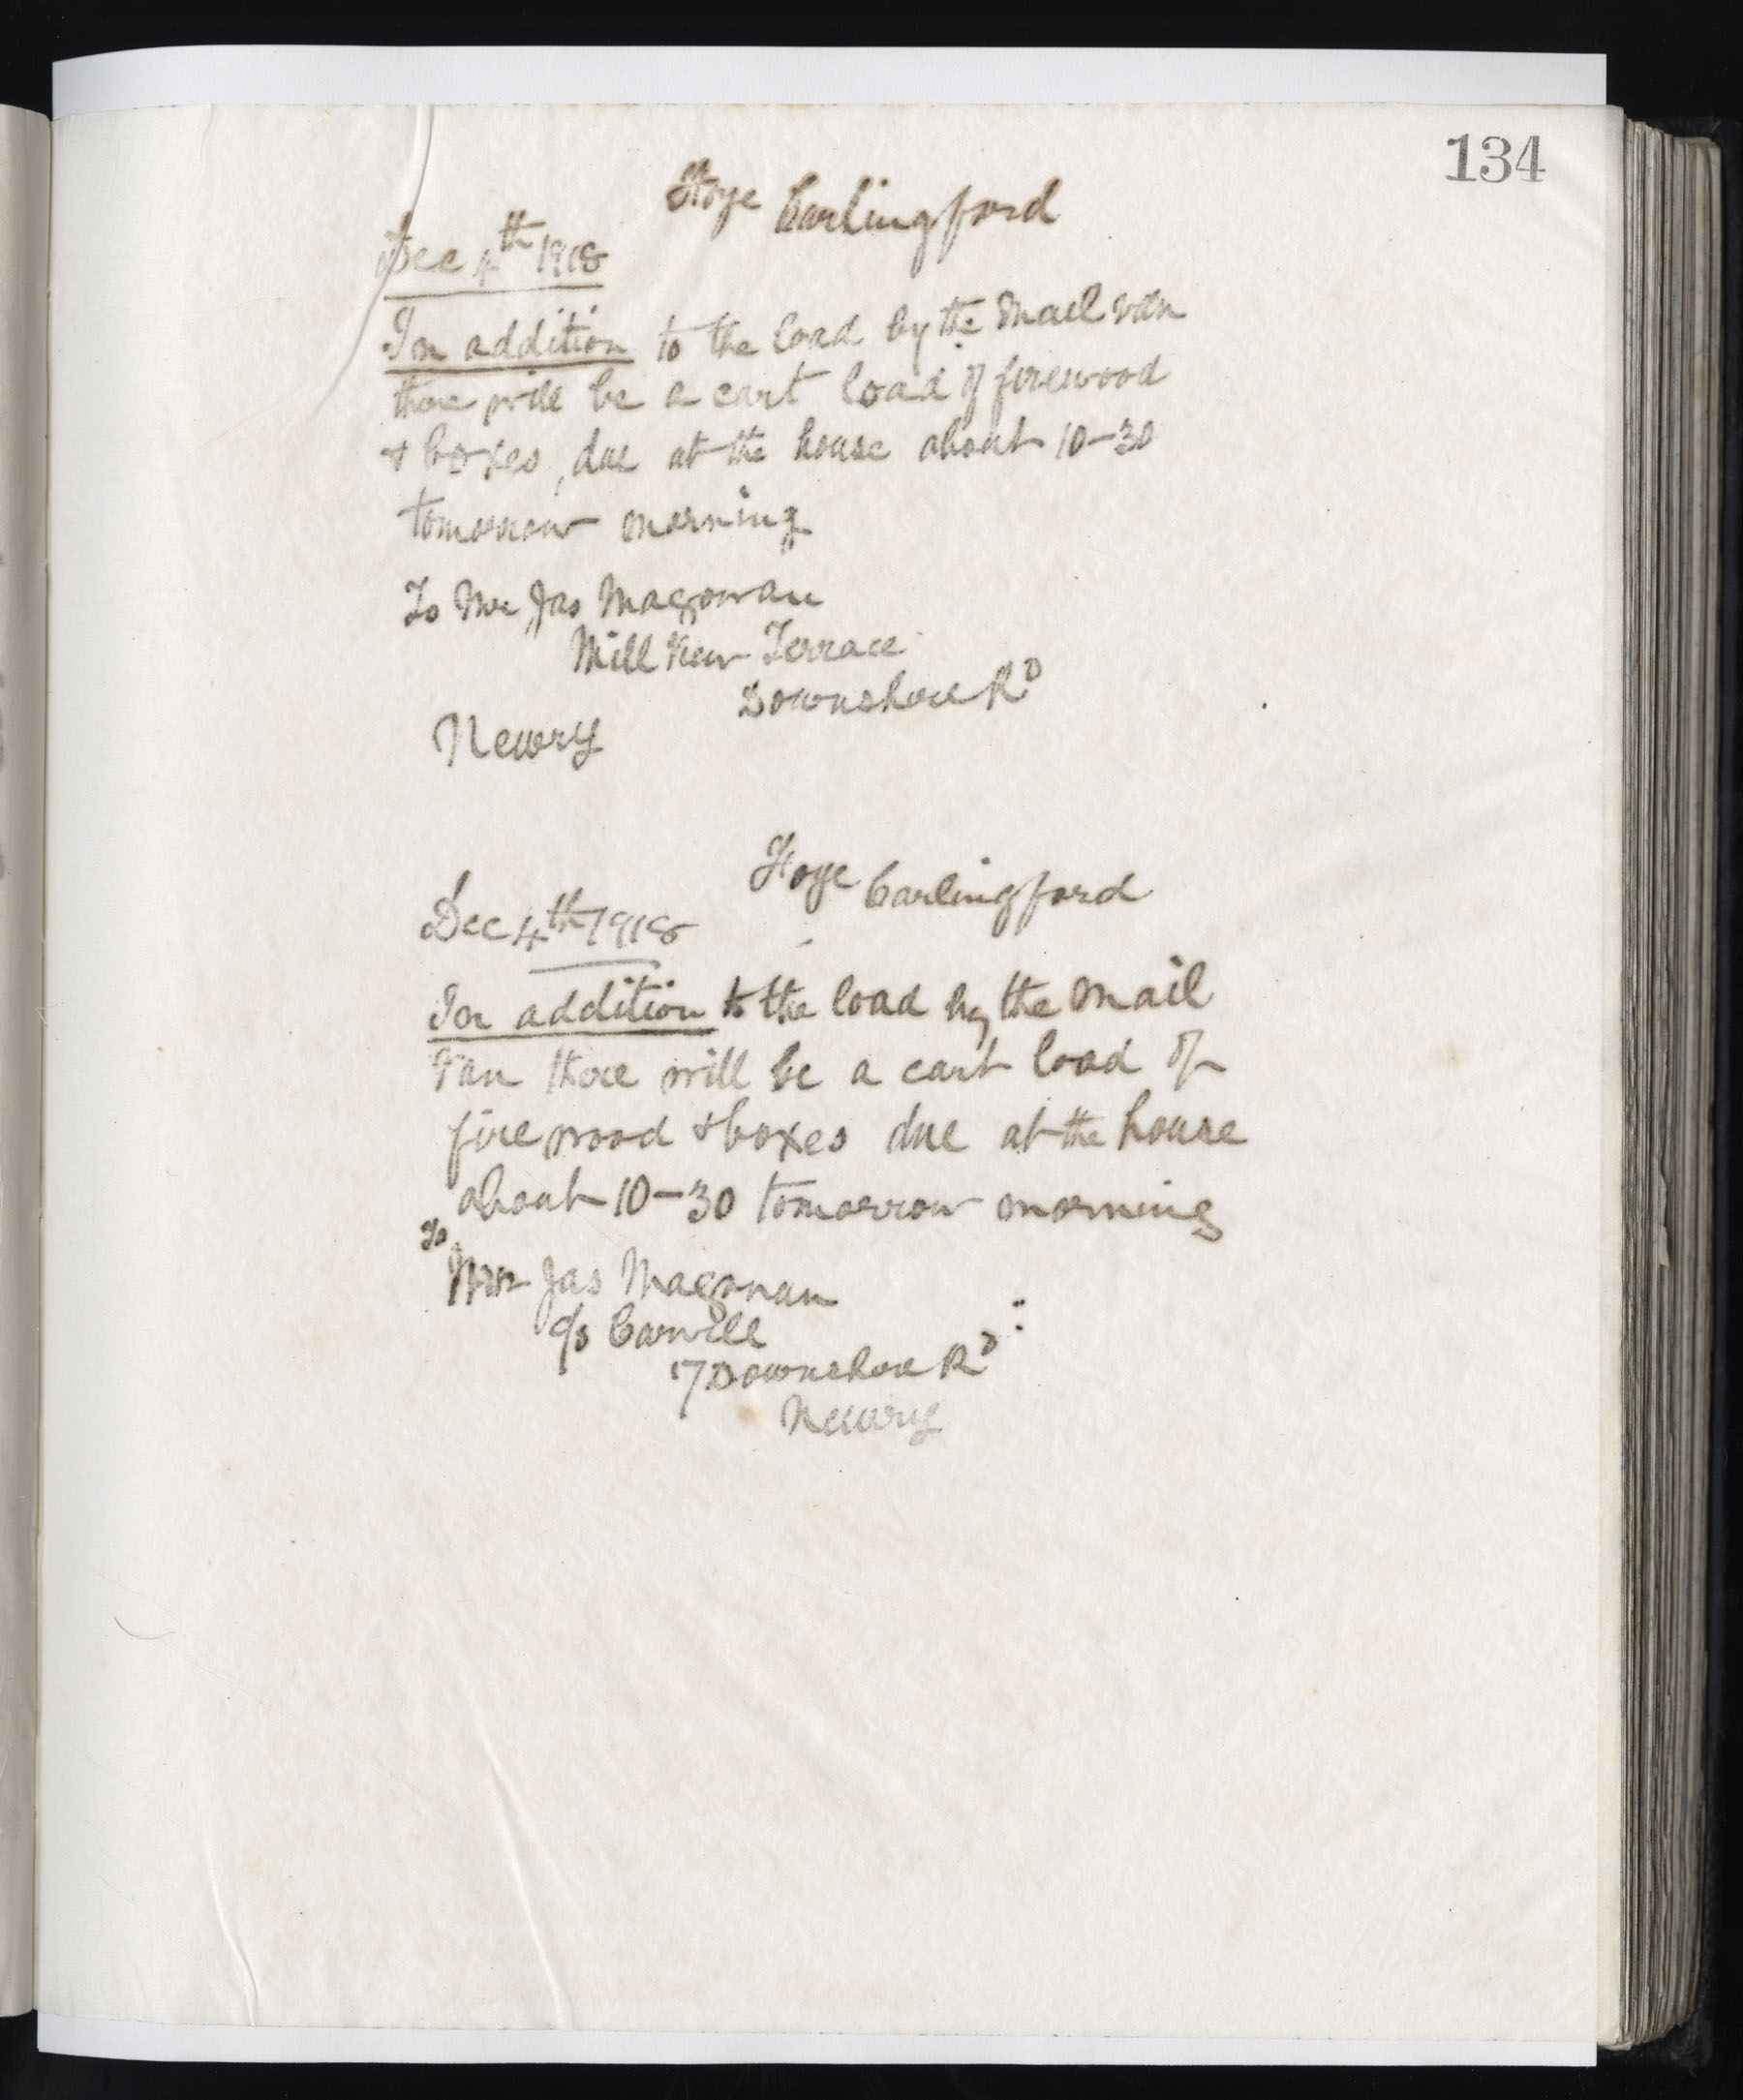 134
Foye Carlingford
Dec 4th 1918
In addition to the load by the Mail van
there will be a cart load of firewood
& boxes, due at the house about 10-30
tomorrow morning
To Mr Jas Magowan
Mill View Terrace
Downshire Rd
Newry
Foye Carlingford
Dec 4th 1918
In addition to the load by the Mail
Van there will be a cart load of
fire wood & boxes due at the house
about 10-30 tomorrow morning
To
Mr Jas Magowan
c/o Carvill
17 Downshire Rd
Newry